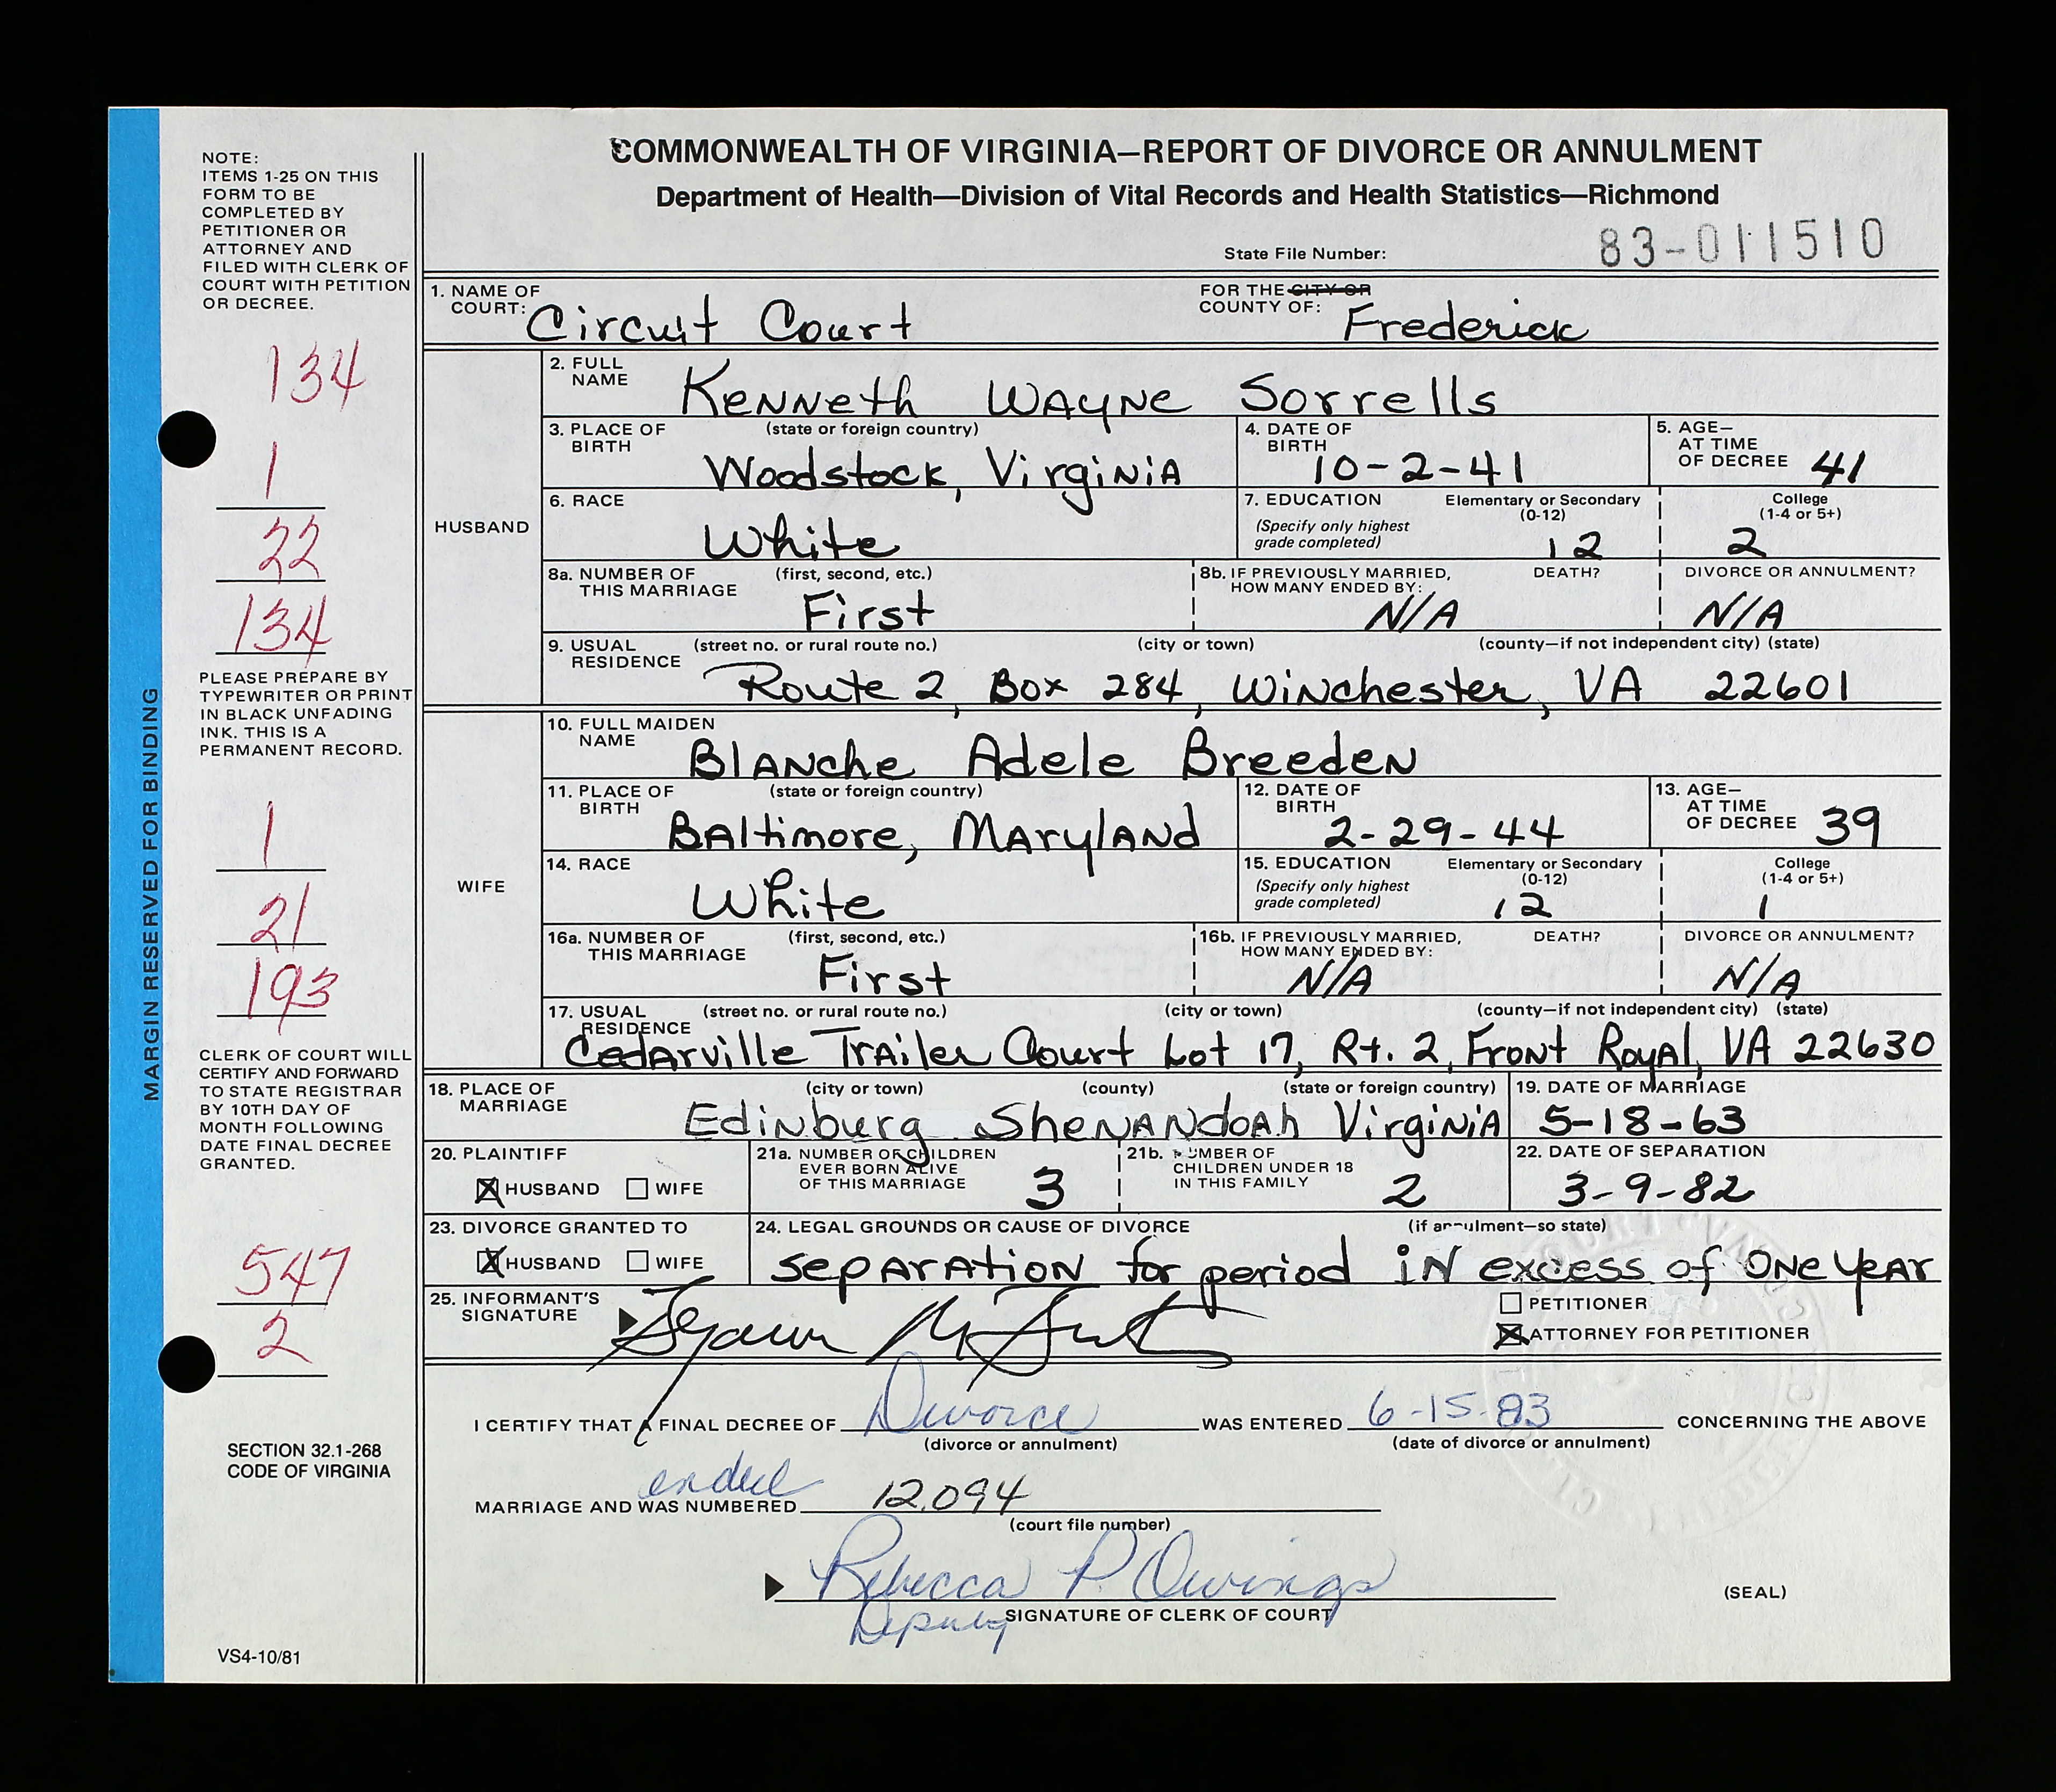 COMMONWEALTH OF VIRGINIA—REPORT OF DIVORCE OR ANNULMENT
Department of Health—Division of Vital Records and Health Statistics—Richmond
State File Number: 83-011510
NOTE:
ITEMS 1-25 ON THIS
FORM TO BE
COMPLETED BY
PETITIONER OR
ATTORNEY AND
FILED WITH CLERK OF
COURT WITH PETITION
OR DECREE.
134
1
22
134
PLEASE PREPARE BY
TYPEWRITER OR PRINT
IN BLACK UNFADING
INK. THIS IS A
PERMANENT RECORD.
1
21
193
CLERK OF COURT WILL
CERTIFY AND FORWARD
TO STATE REGISTRAR
BY 10TH DAY OF
MONTH FOLLOWING
DATE FINAL DECREE
GRANTED.
547
2
SECTION 32.1-268
CODE OF VIRGINIA
VS4-10/81
MARGIN RESERVED FOR BINDING
1. NAME OF COURT: Circuit Court FOR THE CITY OR COUNTY OF: Frederick
HUSBAND
2. FULL NAME Kenneth Wayne Sorrells
3. PLACE OF BIRTH (state or foreign country) Woodstock, Virginia
4. DATE OF BIRTH 10-2-41
5. AGE— AT TIME OF DECREE 41
6. RACE White
7. EDUCATION (Specify only highest grade completed) Elementary or Secondary (0-12) 12 College (1-4 or 5+) 2
8a. NUMBER OF THIS MARRIAGE (first, second, etc.) First
8b. IF PREVIOUSLY MARRIED, HOW MANY ENDED BY: DEATH? N/A DIVORCE OR ANNULMENT? N/A
9. USUAL RESIDENCE (street no. or rural route no.) (city or town) (county—if not independent city) (state)
Route 2, Box 284, Winchester, VA 22601
WIFE
10. FULL MAIDEN NAME Blanche Adele Breeden
11. PLACE OF BIRTH (state or foreign country) Baltimore, Maryland
12. DATE OF BIRTH 2-29-44
13. AGE— AT TIME OF DECREE 39
14. RACE White
15. EDUCATION (Specify only highest grade completed) Elementary or Secondary (0-12) 12 College (1-4 or 5+) 1
16a. NUMBER OF THIS MARRIAGE (first, second, etc.) First
16b. IF PREVIOUSLY MARRIED, HOW MANY ENDED BY: DEATH? N/A DIVORCE OR ANNULMENT? N/A
17. USUAL RESIDENCE (street no. or rural route no.) (city or town) (county—if not independent city) (state)
Cedarville Trailer Court Lot 17, Rt. 2, Front Royal, VA 22630
18. PLACE OF MARRIAGE (city or town) (county) (state or foreign country)
Edinburg Shenandoah Virginia
19. DATE OF MARRIAGE 5-18-63
20. PLAINTIFF X HUSBAND WIFE
21a. NUMBER OF CHILDREN EVER BORN ALIVE OF THIS MARRIAGE 3
21b. NUMBER OF CHILDREN UNDER 18 IN THIS FAMILY 2
22. DATE OF SEPARATION 3-9-82
23. DIVORCE GRANTED TO X HUSBAND WIFE
24. LEGAL GROUNDS OR CAUSE OF DIVORCE (if annulment—so state)
separation for period in excess of one year
25. INFORMANT'S SIGNATURE
PETITIONER
X ATTORNEY FOR PETITIONER
I CERTIFY THAT A FINAL DECREE OF Divorce WAS ENTERED 6-15-83 CONCERNING THE ABOVE
(divorce or annulment) (date of divorce or annulment)
ended
MARRIAGE AND WAS NUMBERED 12,094
(court file number)
Rebecca P. Owings
Deputy SIGNATURE OF CLERK OF COURT
(SEAL)